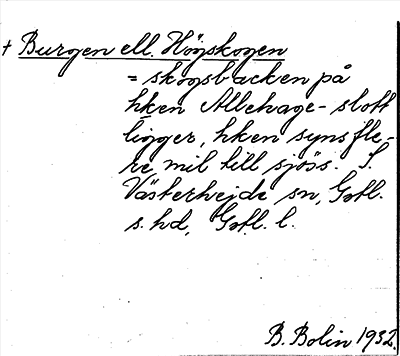 + Burgen ell. Högskogen
= skogsbacken på
hken Allehage-slott
ligger, hken syns fle-
re mil till sjöss. S.
Västerhejde sn, Gotl.
s. hd, Gotl. l.
B. Bolin 1932.